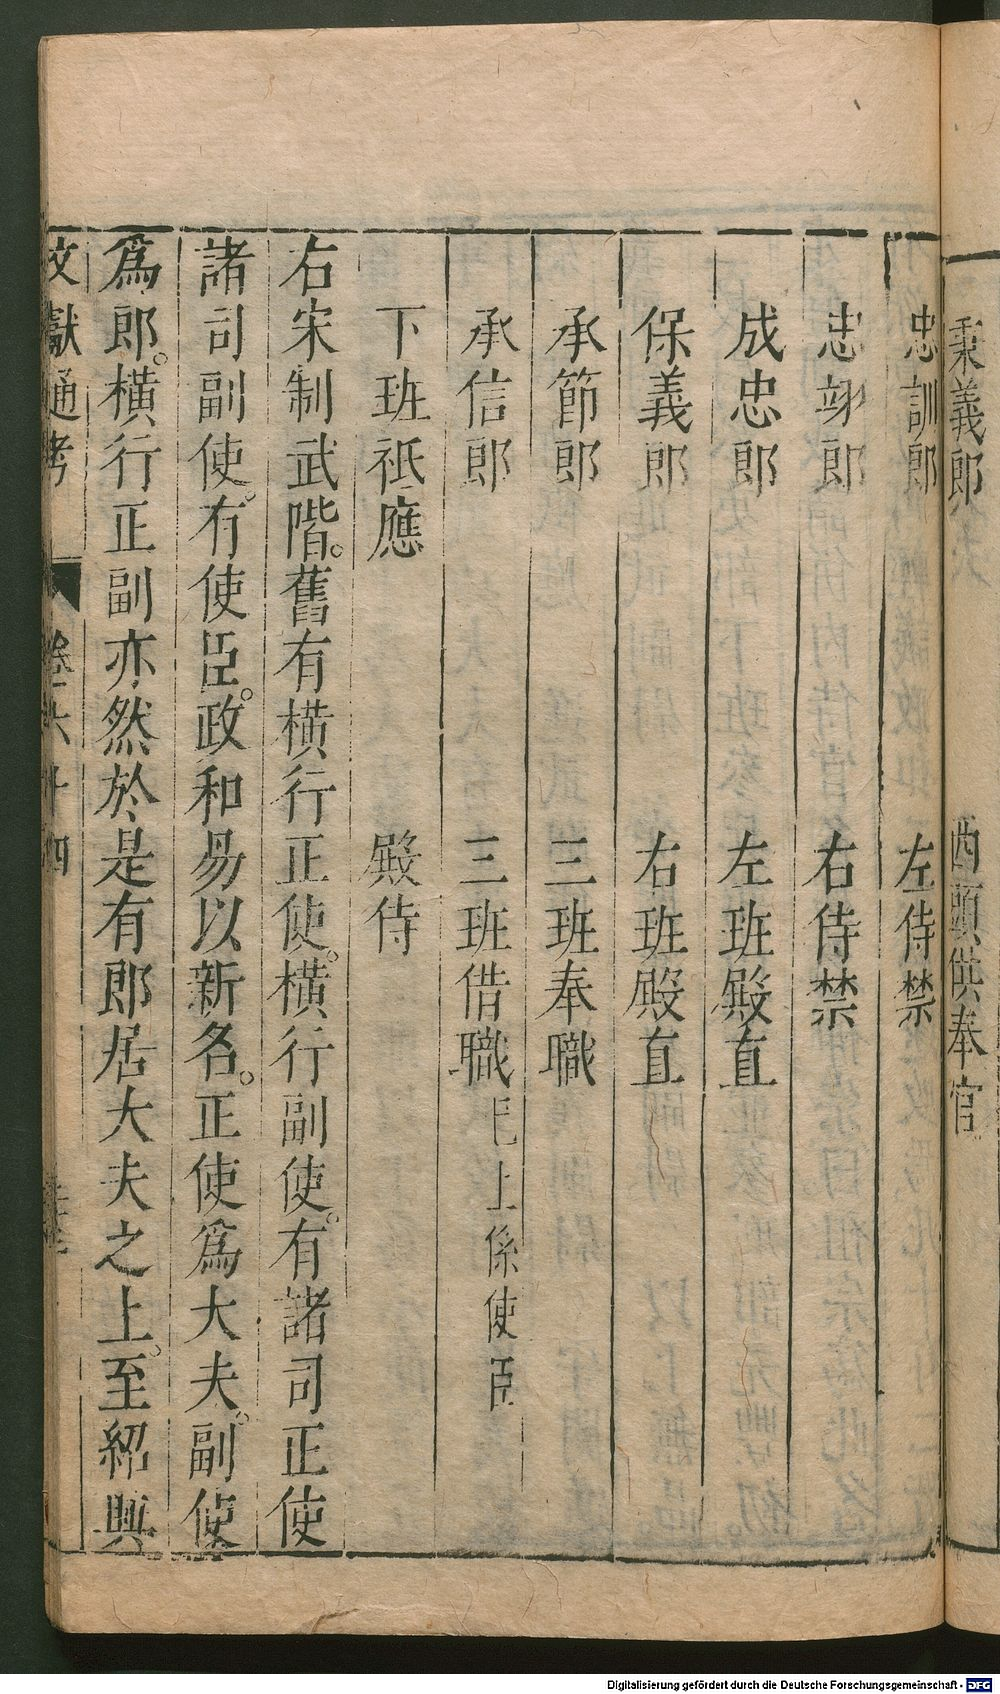 秉義郎　西頭供奉官
忠訓郎　左侍禁
忠翊郎　右侍禁
成忠郎　左班殿直
保義郎　右班殿直
承節郎　三班奉職
承信郎　三班借職　已上係使臣
下班祇應　殿侍
右宋制武階。舊有橫行正使。橫行副使。有諸司正使
諸司副使。有使臣。政和易以新名。正使爲大夫。副使
爲郎。橫行正副亦然於是有郎居大夫之上。至紹興
文獻通考　卷六十四
Digitalisierung gefördert durch die Deutsche Forschungsgemeinschaft - DFG